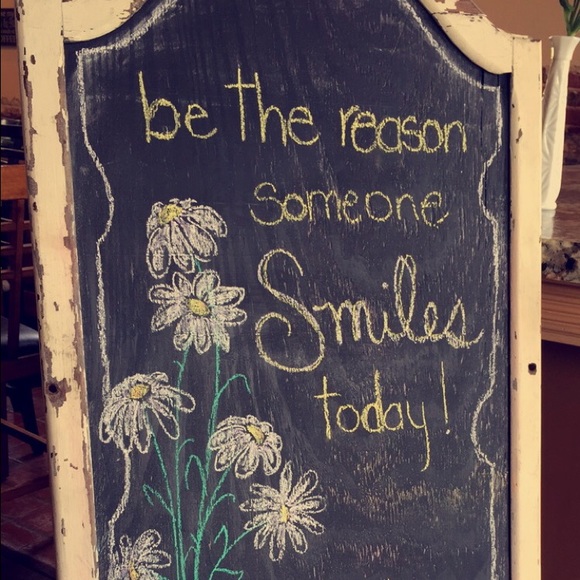 be the reason
someone
Smiles
today!